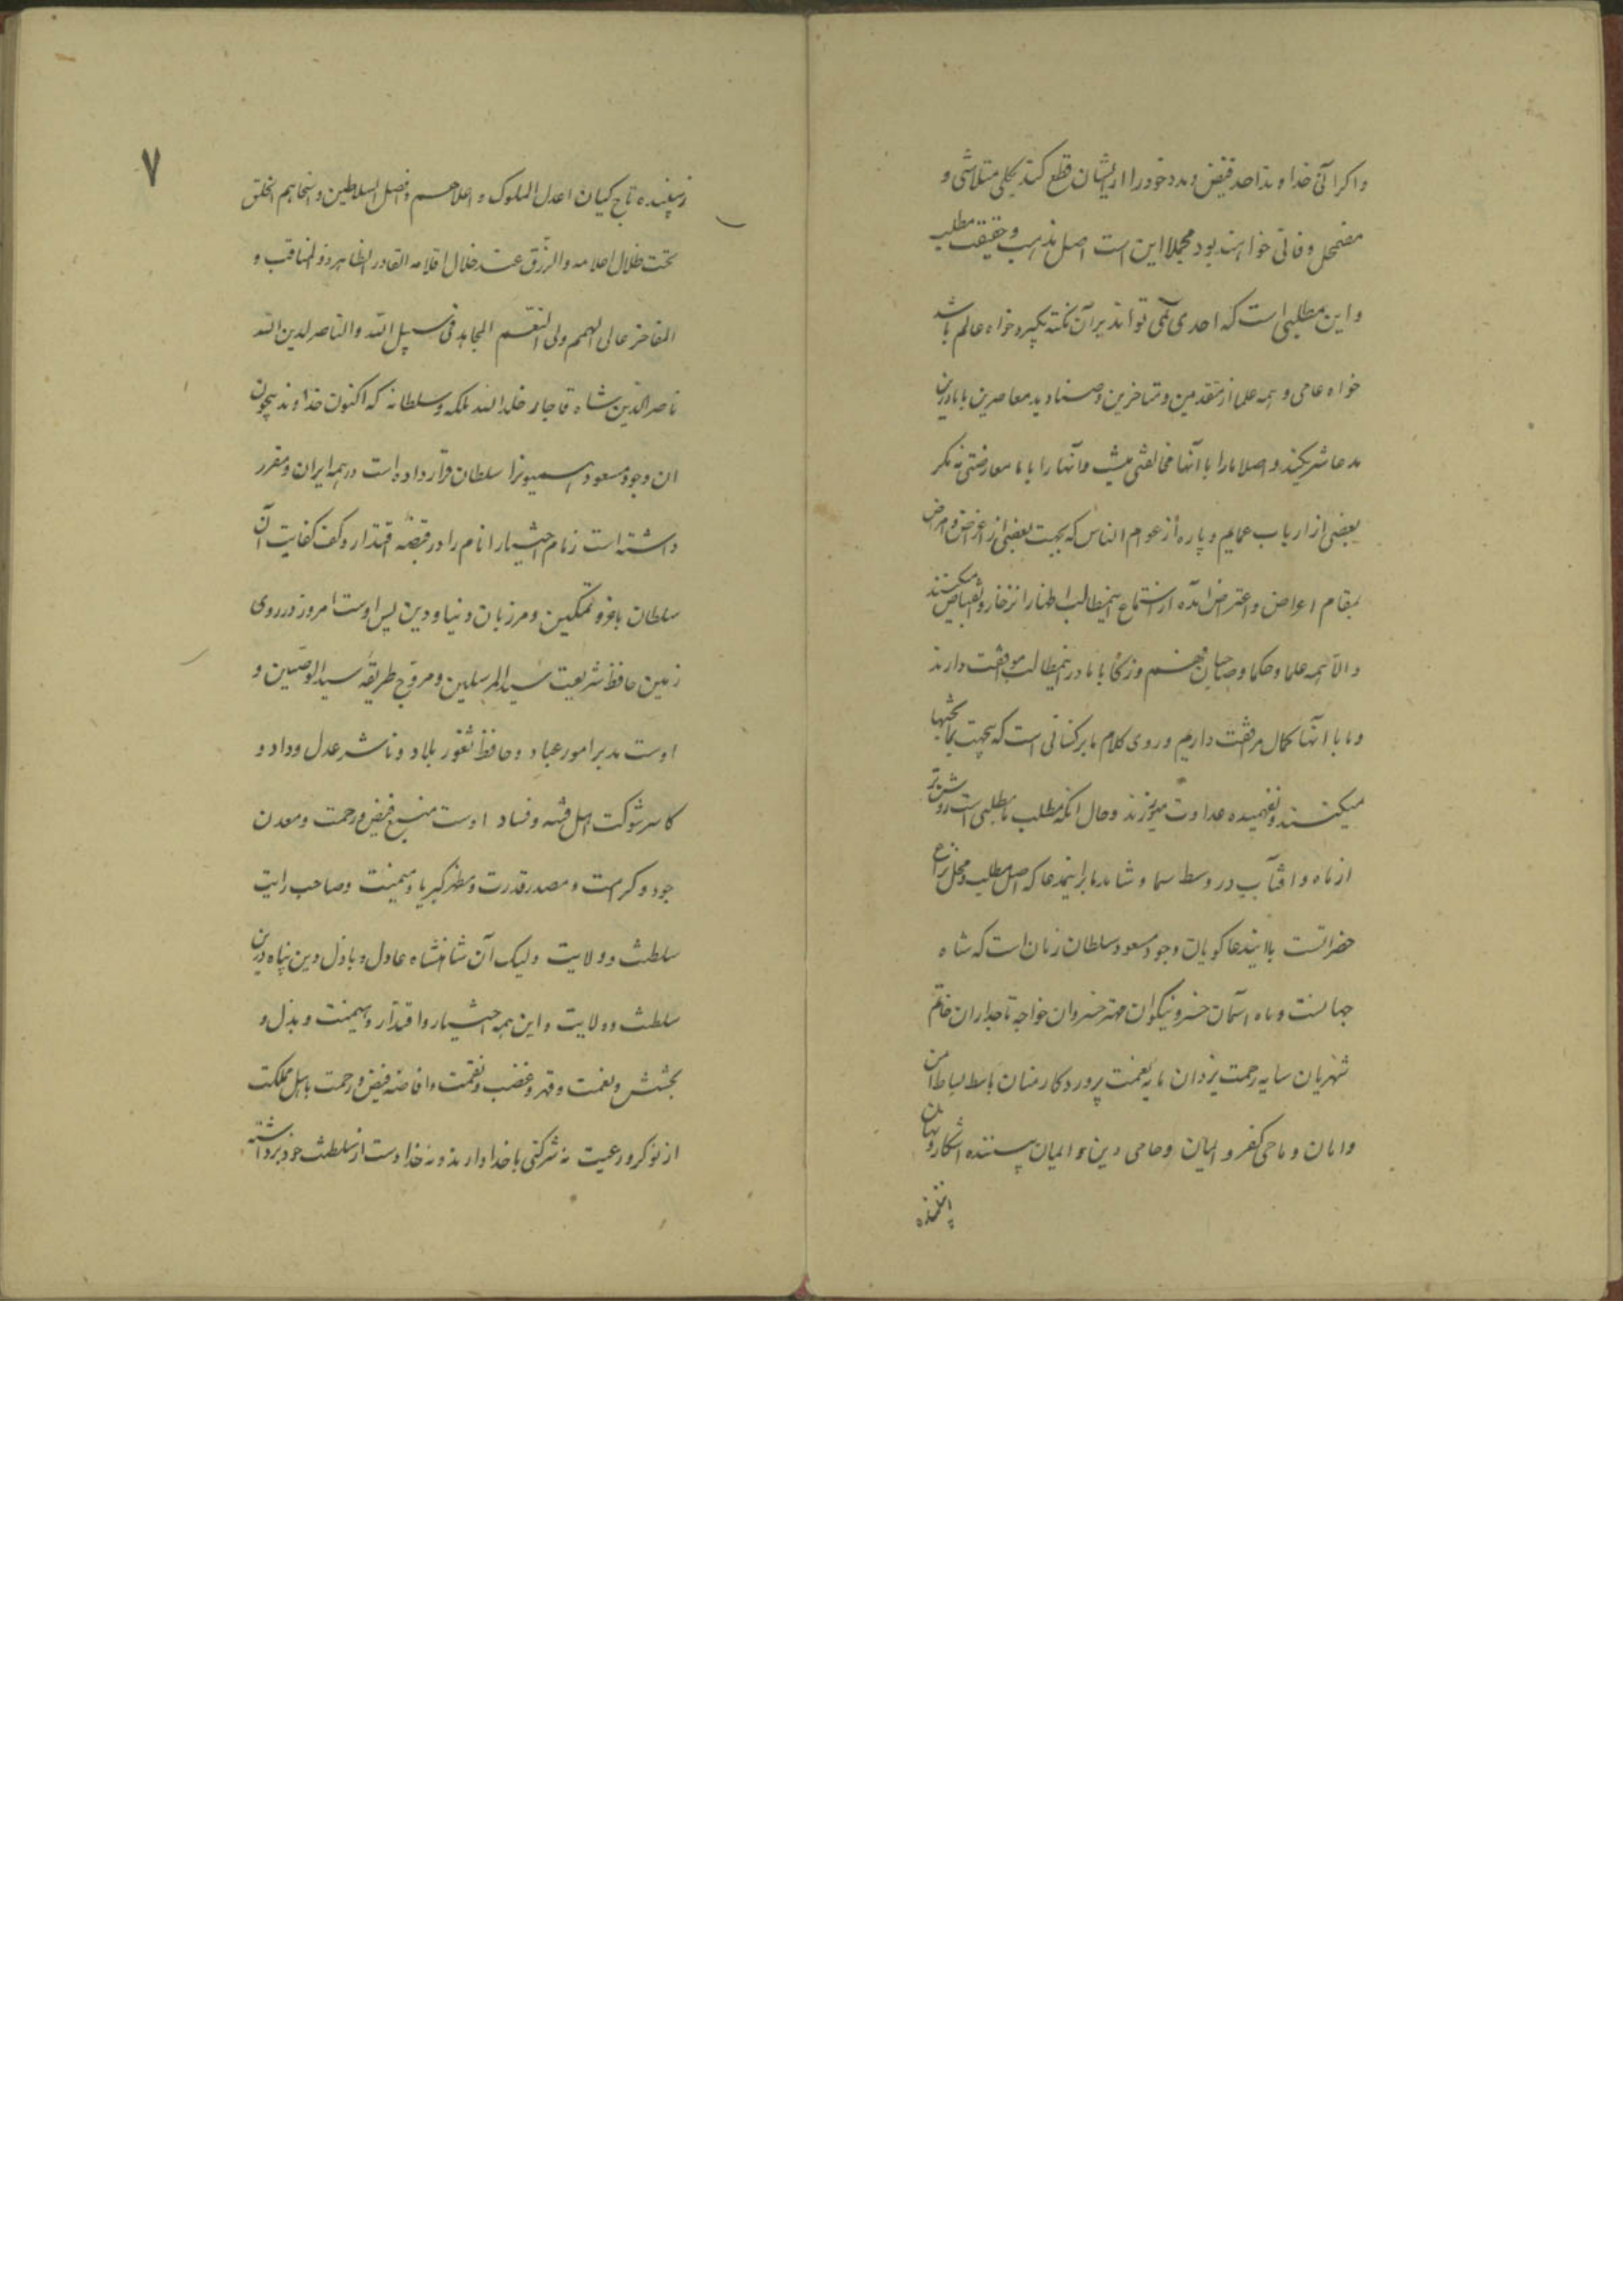 و اگر آنی خداوند احد فیض و مدد خود را از ایشان قطع کند بکلی متلاشی و
مضمحل و فانی خواهند بود مجملا این است اصل مذهب و حقیقت مطلب
و این مطلبی است که احدی نمی تواند بر آن نکته بگیرد خواه عالم باشد
خواه عامی و همه علما از متقدمین و متاخرین و صنادید معاصرین با ما درین
مدعا شریکند و اصلا ما را با آنها مخالفتی نیست و آنها را با ما معارضتی نه مگر
بعضی از ارباب عمایم و پاره از عوام الناس که بجهت بعضی از اغراض و امراض
بمقام اعراض و اعتراض آمده از استماع اینمطالب اظهار انزجار و انقباض میکنند
و الا همه علما و حکما و صاحبان فهم و زکا با ما در اینمطالب موافقت دارند
و ما با آنها کمال مرافقت داریم و روی کلام ما بر کسانی است که بجهت
میکنند و نفهمیده عداوت میورزند و حال آنکه مطلب ما مطلبی است روشن تر
از ماه و آفتاب در وسط سما و شاهد ما بر اینمدعا که اصل مطلب و محل نزاع
حضراتست بلا ایندعاگویان وجود مسعود سلطان زمان است که شاه
جهانست و ماه آسمان خسرو نیکوان مهتر خسروان خواجه تاجداران خاتم
شهریان سایه رحمت یزدان مایه نعمت پروردگار منان باسط بساط امن
و امان و ماحی کفر و حامی دین و ایمان پسندیده آشکار و نهان
زیبنده
زیبنده تاج کیان اعدل الملوک و اعلاهم و افضل السلاطین و اسخاهم الخلق
تحت ظلال اعلامه و الرزق عند خلال اقلامه القادر الظاهر ذو المناقب و
المفاخر عالی الهمم ولی النعم المجاهد فی سبیل الله و الناصر لدین الله
ناصرالدین شاه قاجار خلد الله ملکه و سلطانه که اکنون خداوند بیچون
آن وجود مسعود را سلطان قرار داده است در همه ایران و مقرر
داشته است زمام اختیار انام را در قبضه اقتدار و کف کفایت آن
سلطان با فر و تمکین و مرزبان دنیا و دین پس اوست امروز در روی
زمین حافظ شریعت سید المرسلین و مروج طریقه سید الوصیین و
اوست مدبر امور عباد و حافظ ثغور بلاد و ناشر عدل و داد و
کاسر شوکت اهل فتنه و فساد اوست منبع فیض و رحمت و معدن
جود و کرامت و مصدر قدرت و مظهر کبریا و هیمنت و صاحب رایت
سلطنت و ولایت ولیک آن شاهنشاه عادل و باذل و دین پناه درین
سلطنت و ولایت و این همه اختیار و اقتدار و هیمنت و بذل و
بخشش و نعمت و قهر و غضب و نقمت و افاضه فیض و رحمت باهل مملکت
از نوکر و رعیت نه شرکتی با خدا دارند و نه خدا دست از سلطنت خود برداشته
۷